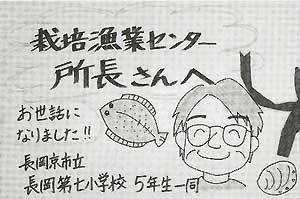 栽培漁業センター
所長さんへ
お世話に
なりました!!
長岡京市立
長岡第七小学校 5年生一同